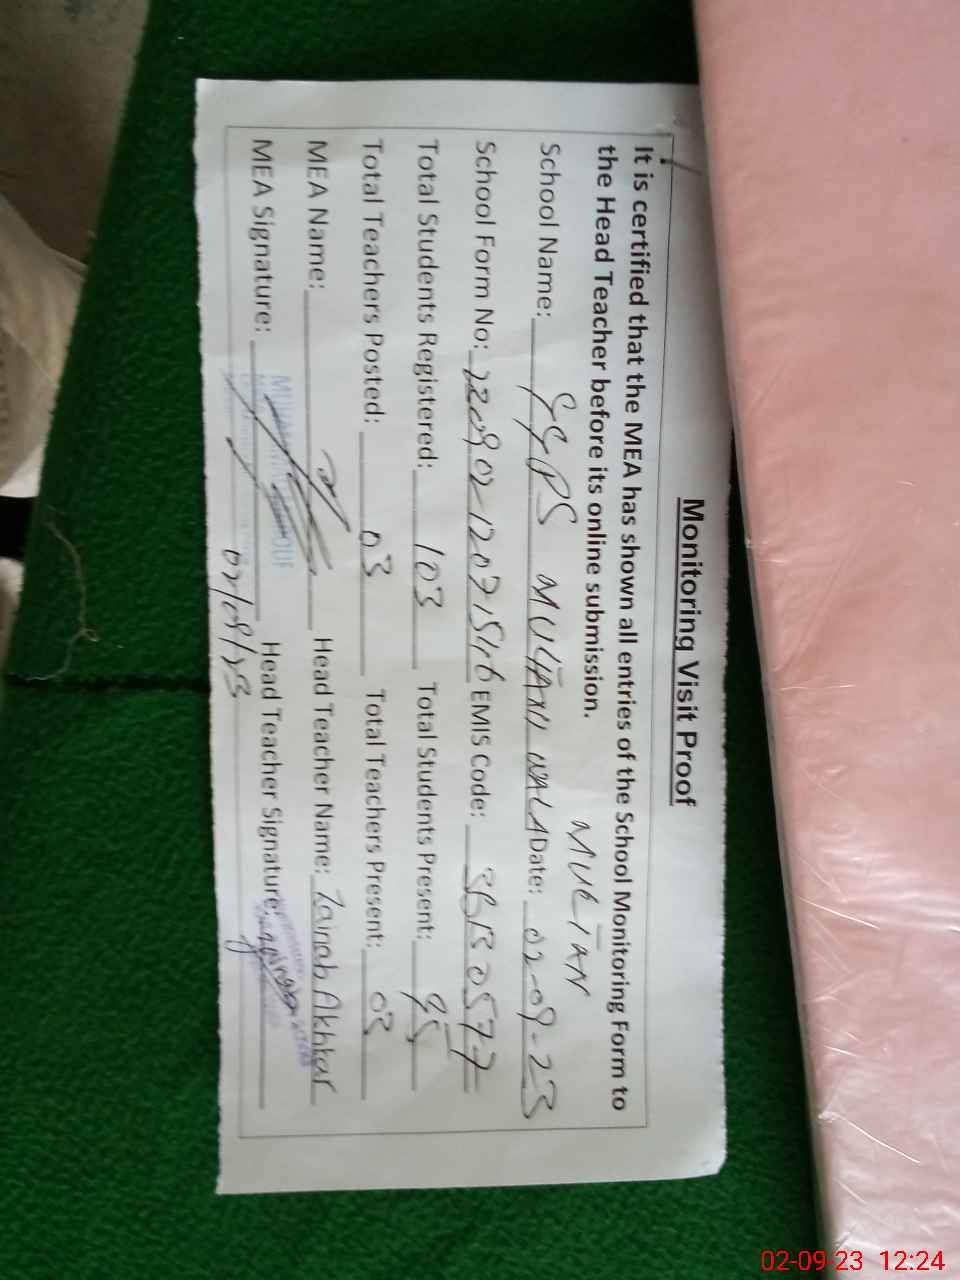 Monitoring Visit Proof
It is certified that the MEA has shown all entries of the School Monitoring Form to
the Head Teacher before its online submission.
MULIAN
School Name: GGPS MULIANI WALA Date: 02-09-23
School Form No: EMIS Code:
Total Students Registered: 103 Total Students Present: 95
Total Teachers Posted: 03 Total Teachers Present: 03
MEA Name: Head Teacher Name: Zainab Akhtar
MEA Signature: Head Teacher Signature:
02/09/23
02-09-23 12:24